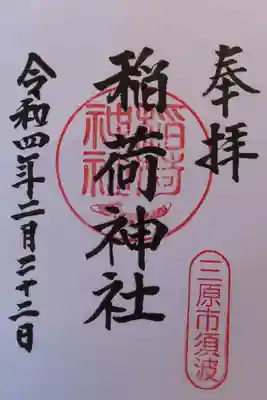 奉拝
三原市須波
稲荷神社
稲荷
神社
令和四年二月二十二日